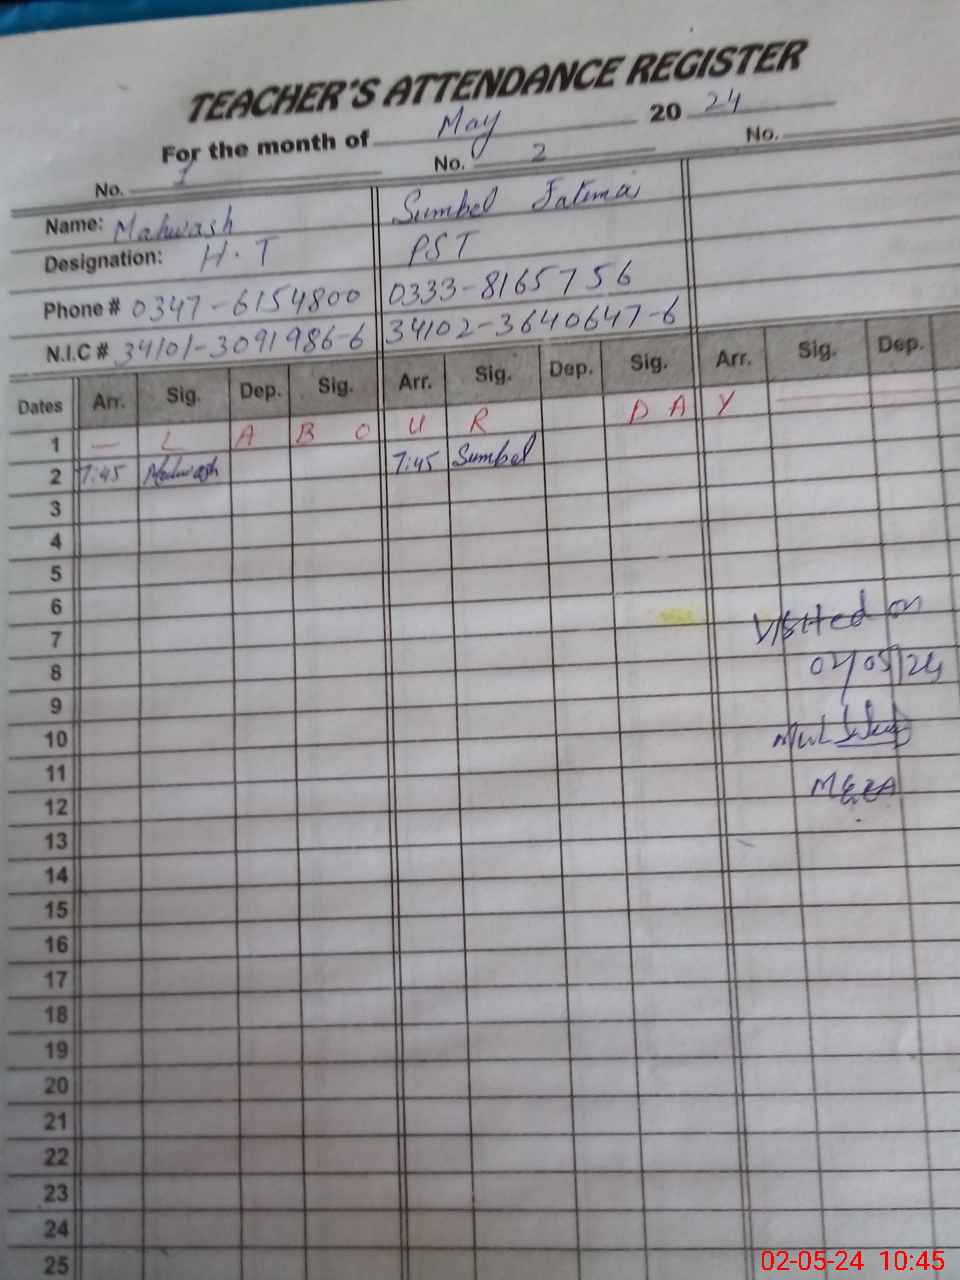 TEACHER'S ATTENDANCE REGISTER
For the month of May 20 24
No. 1 No. 2 No.
Name: Mahwash Sumbel Fatima
Designation: H.T PST
Phone # 0347-6154800 0333-8165756
N.I.C # 34101-3091986-6 34102-3640647-6
Dates Arr. Sig. Dep. Sig. Arr. Sig. Dep. Sig. Arr. Sig. Dep.
1 — L A B O U R D A Y
2 7:45 Mahwash 7:45 Sumbel
3
4
5
6
7 Visited on
8 02/05/24
9
10
11
12
13
14
15
16
17
18
19
20
21
22
23
24
25
02-05-24 10:45